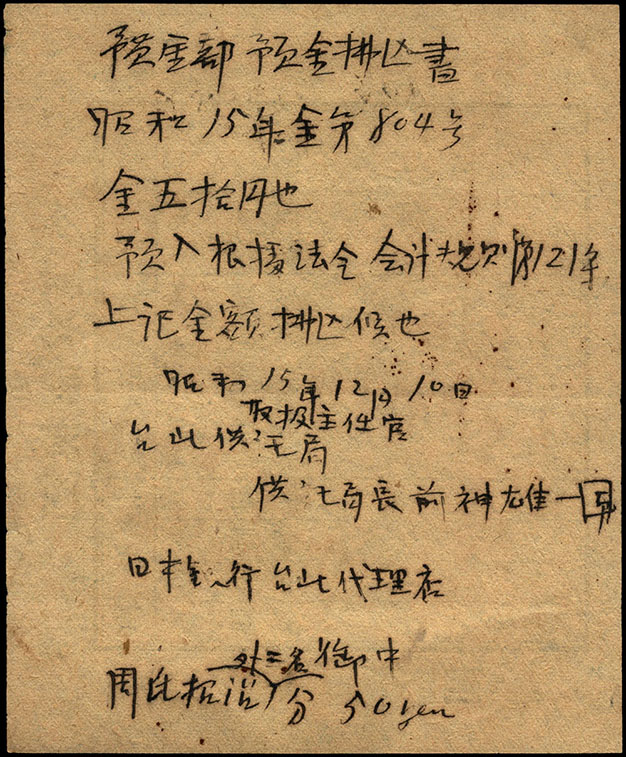 預金部預金拂込書
昭和15年金第804号
金五拾円也
預入根據法令 会計規則第121条
上记金額拂込候也
昭和15年12月10日
取扱主任官
台北供託局
供託局長前神雄一印
日本銀行台北代理店
外二名御中
周氏招治 分 50yen